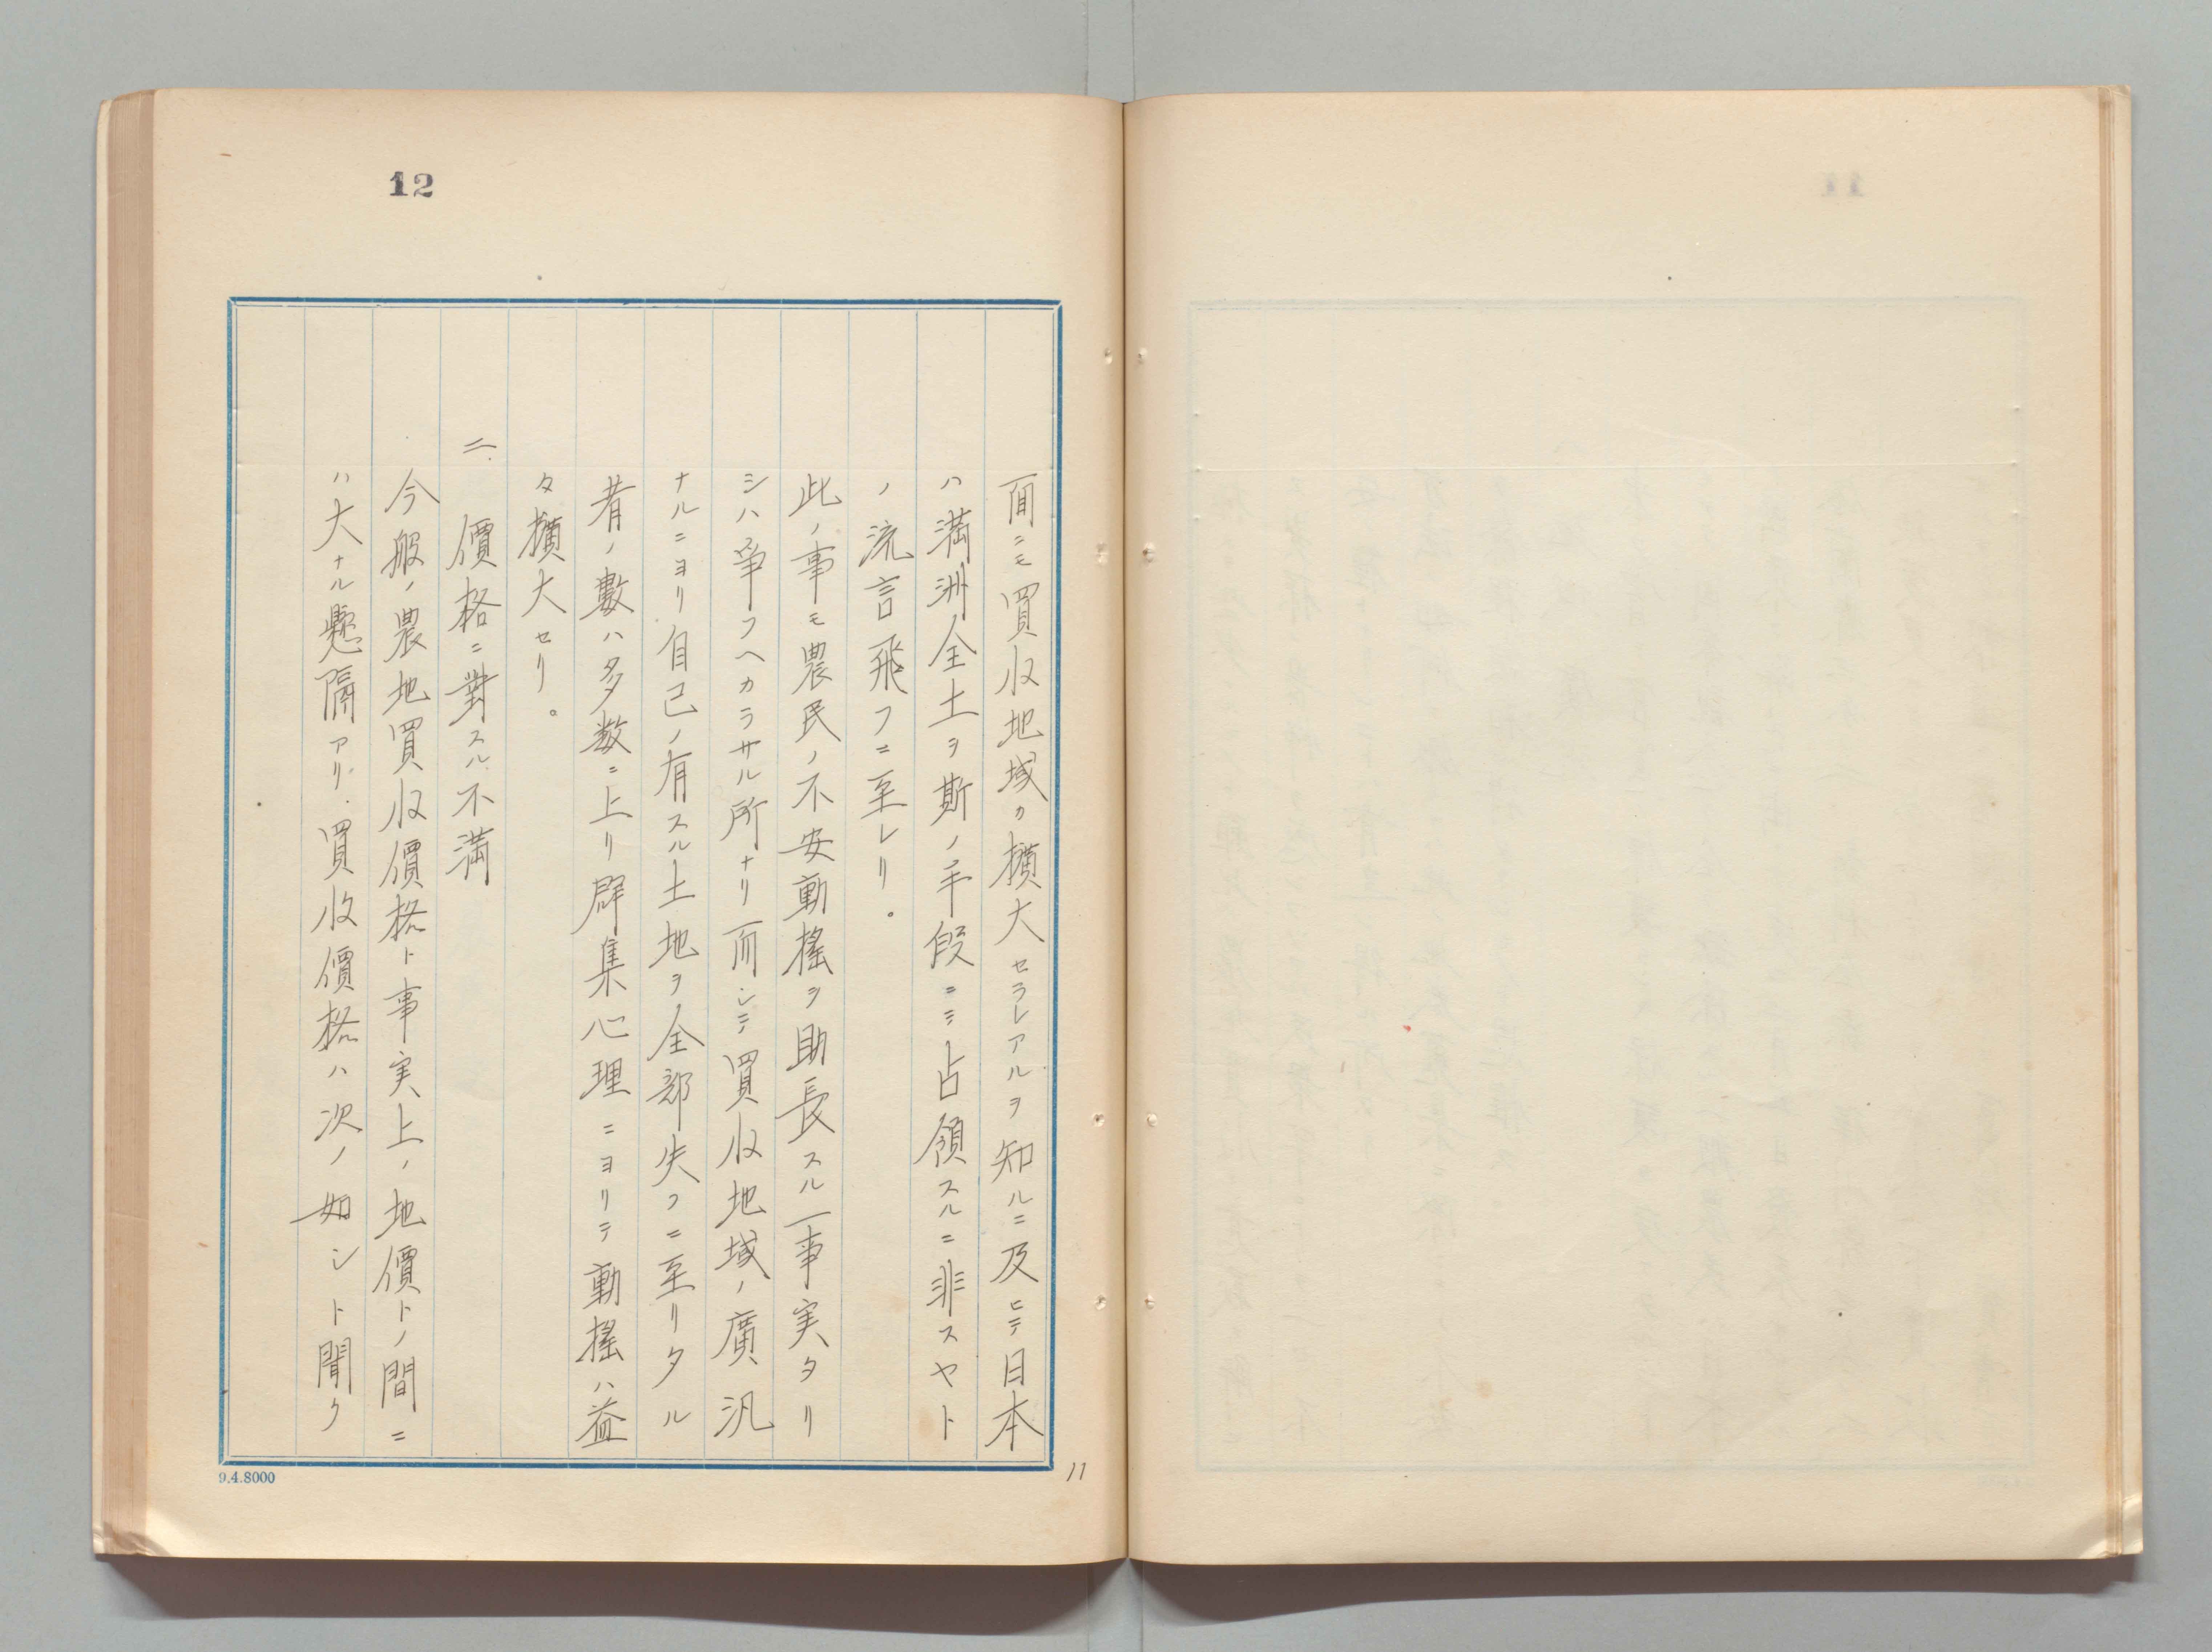 12
面ニモ買収地域カ擴大セラレアルヲ知ルニ及ヒテ日本
ハ満洲全土ヲ斯ノ手段ニテ占領スルニ非スヤト
ノ流言飛フニ至レリ。
此ノ事モ農民ノ不安動搖ヲ助長スル一事実タリ
シハ爭フヘカラサル所ナリ而シテ買収地域ノ廣汎
ナルニヨリ自己ノ有スル土地ヲ全部失フニ至リタル
者ノ數ハ多数ニ上リ群集心理ニヨリテ動搖ハ益
々擴大セリ。
二、價格ニ對スル不満
今般ノ農地買収價格ト事実上ノ地價トノ間ニ
ハ大ナル懸隔アリ、買收價格ハ次ノ如シト聞ク
9.4.8000
11